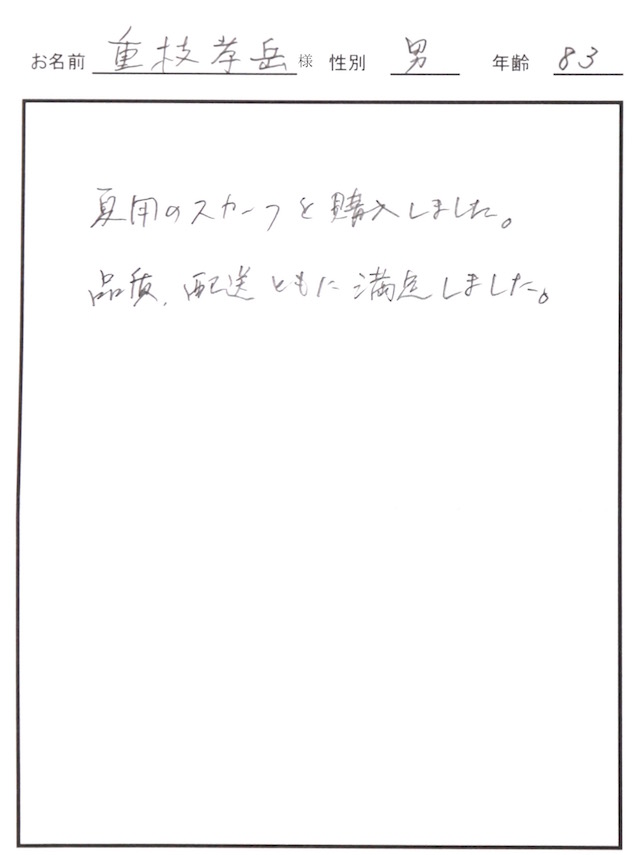 お名前 重枝孝岳 様 性別 男 年齢 83
夏用のスカーフを購入しました。
品質、配送ともに満足しました。